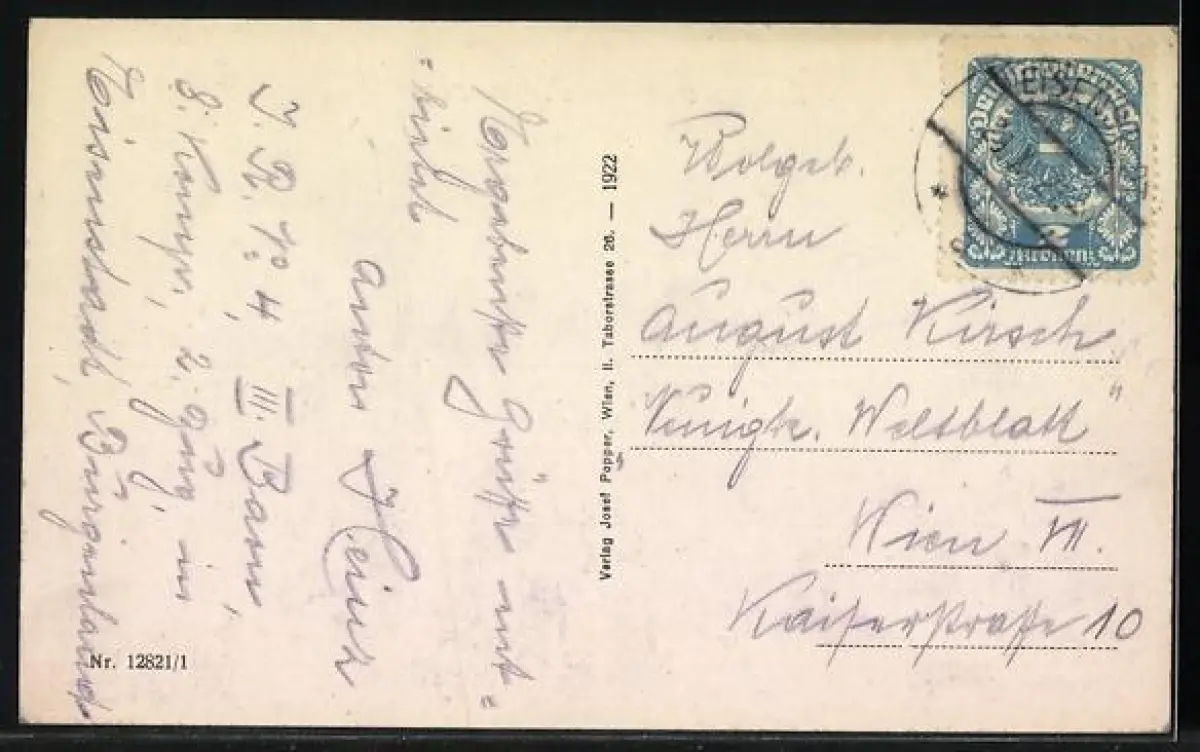 Ergebenste Grüße ent-
Anton
I. R. No 4, III. Baon,
8. Komp., 2. Zug in
Eisenstadt, Burgenland
Nr. 12821/1
Verlag Josef Popper, Wien, II. Taborstrasse 26. — 1922
EISEN
2
Kronen
Wolgeb.
Herrn
August Kirsch
„ Weltblatt"
Wien VII.
Kaiserstraße 10